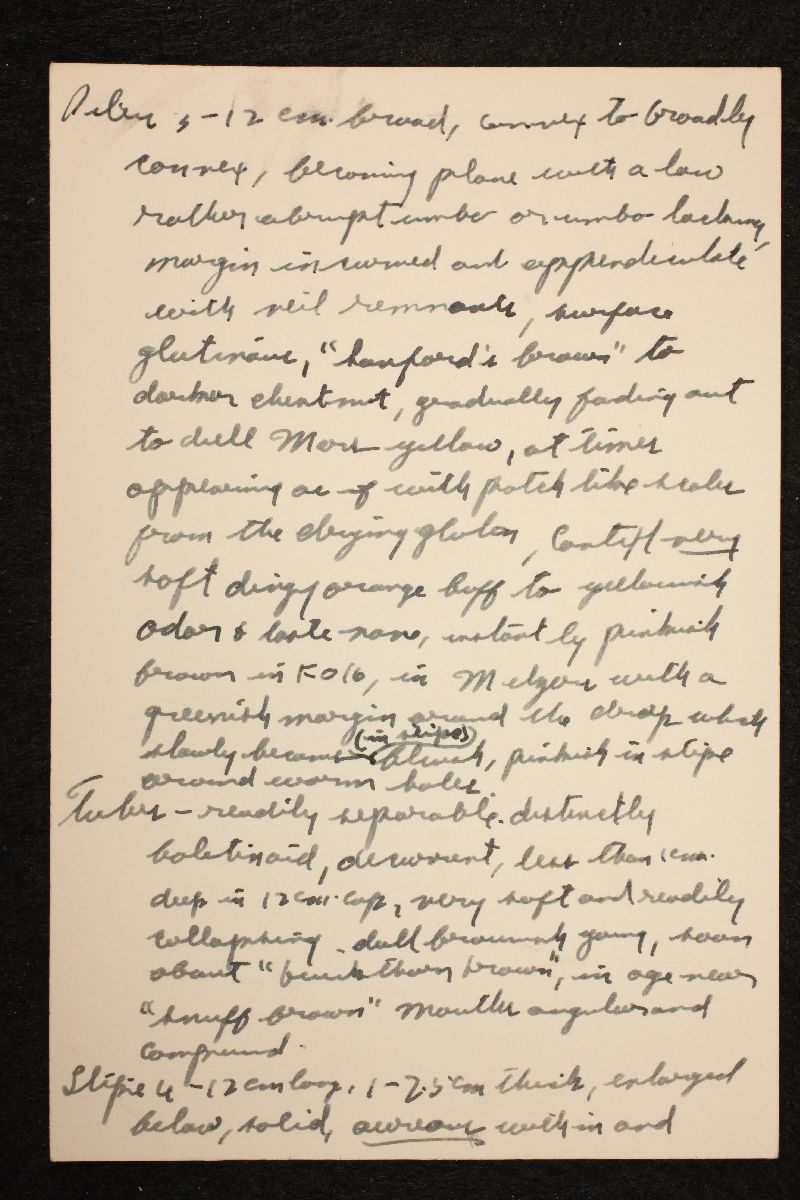 Pileus 5-12 cm. broad, convex to broadly
convex, becoming plane with a low
rather abrupt umbo or umbo lacking,
margin incurved and appendiculate
with veil remnants, surface
glutinous, "Sanford's brown" to
darker chestnut, gradually fading out
to dull Mars yellow, at times
appearing as if with patch like scales
from the drying gluten, Context very
soft dingy orange buff to yellowish
odor & taste none, instantly pinkish
brown in KOH, in Melzers with a
greenish margin around the drop which
(in stipe)
slowly becomes bluish, pinkish in stipe
around worm holes.
Tubes - readily separable. distinctly
boletinoid, decurrent, less than 1 cm.
deep in 12 cm. cap, very soft and readily
collapsing. dull brownish young, soon
about "buckthorn brown", in age near
"snuff brown" mouths angular and
compound.
Stipe 4-12 cm long, 1-2.5 cm thick, enlarged
below, solid, within and